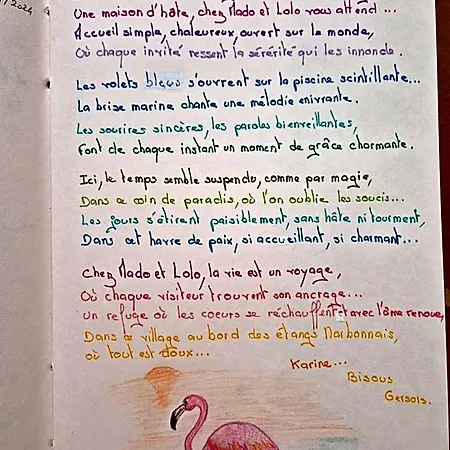 /2024
Une maison d'hôte, chez Mado et Lolo vous attend...
Accueil simple, chaleureux, ouvert sur le monde,
Où chaque invité ressent la sérénité qui les innonde.
Les volets bleus s'ouvrent sur la piscine scintillante...
La brise marine chante une mélodie enivrante.
Les sourires sincères, les paroles bienveillantes,
Font de chaque instant un moment de grâce charmante.
Ici, le temps semble suspendu, comme par magie,
Dans ce coin de paradis, où l'on oublie les soucis...
Les jours s'étirent paisiblement, sans hâte ni tourment,
Dans cet havre de paix, si accueillant, si charmant...
Chez Mado et Lolo, la vie est un voyage,
Où chaque visiteur trouvent son ancrage...
Un refuge où les coeurs se réchauffent et avec l'âme renoue,
Dans ce village au bord des étangs Narbonnais,
où tout est doux...
Karine...
Bisous
Gersois.